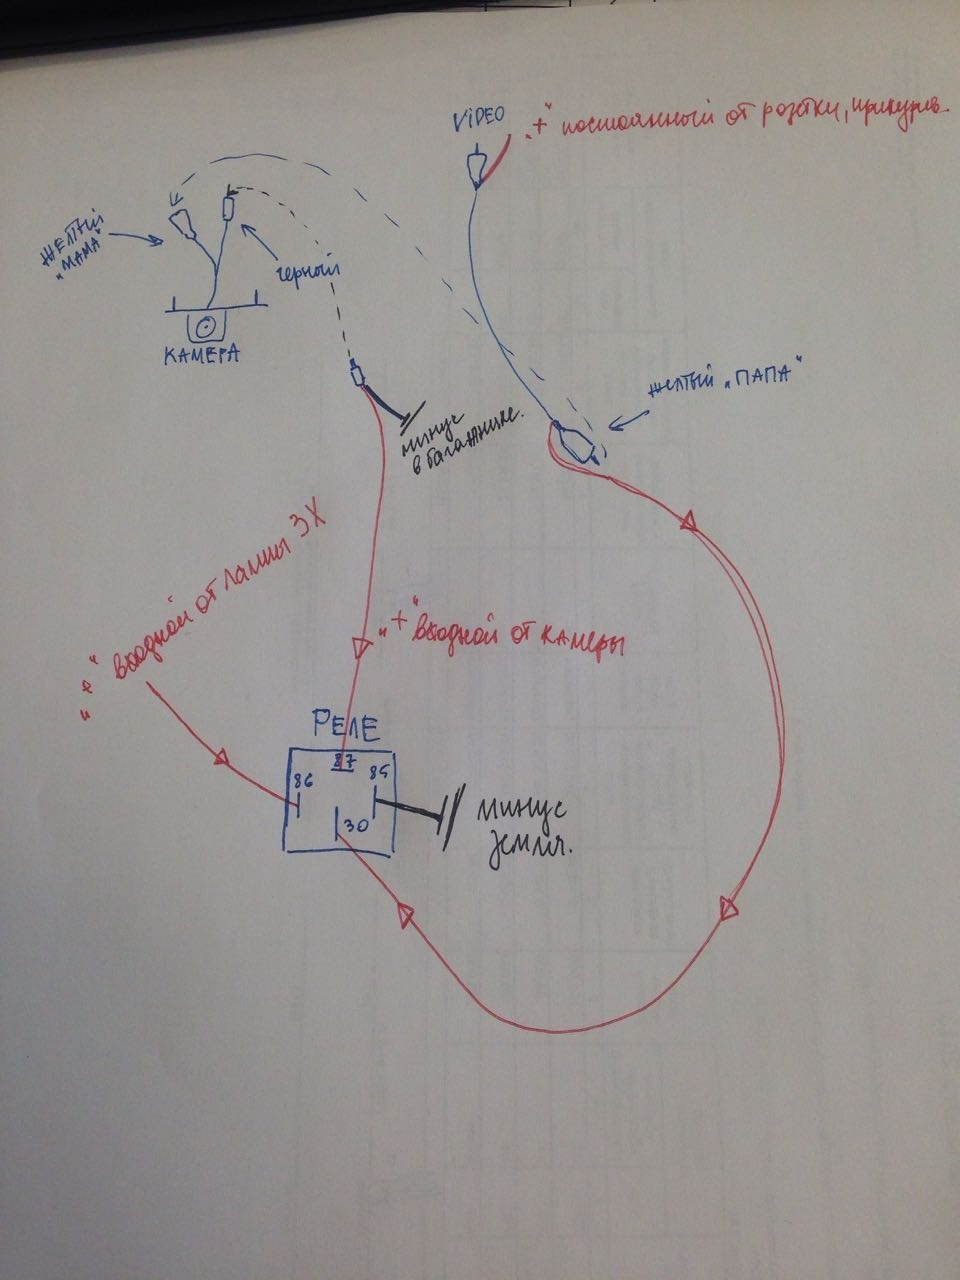 VIDEO
„+" постоянный от розетки, прикурив.
ЖЕЛТЫЙ
„МАМА"
ЧЕРНЫЙ
КАМЕРА
ЖЕЛТЫЙ „ПАПА"
минус
в багажнике.
„+" входной от лампы ЗХ
„+" входной от камеры
РЕЛЕ
87
86
85
30
минус
земля.